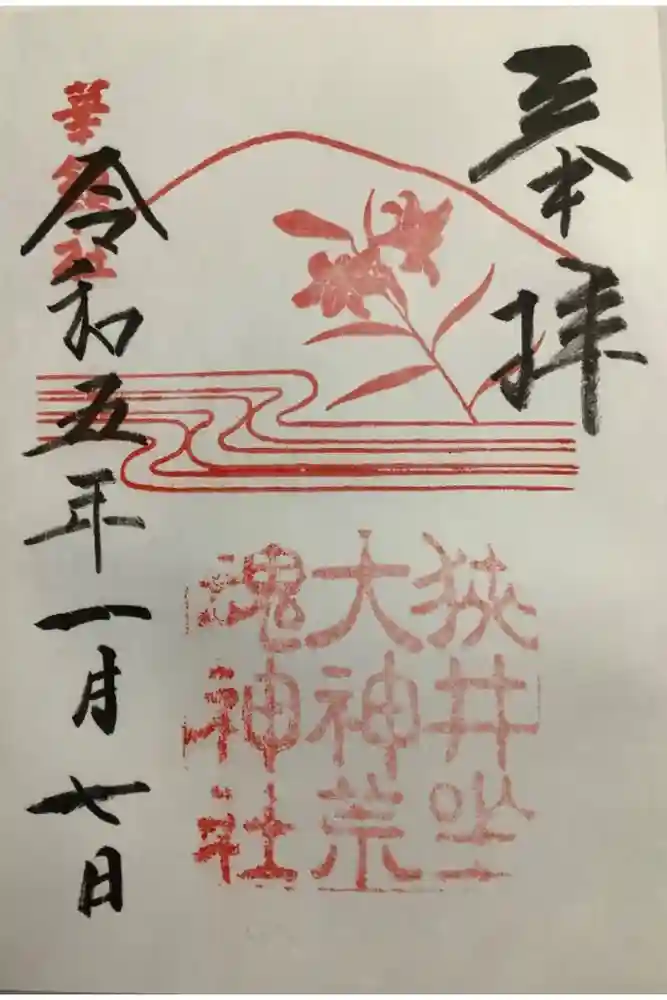 奉拝
狭井坐
大神荒
魂神社
華鎮社
令和五年一月七日